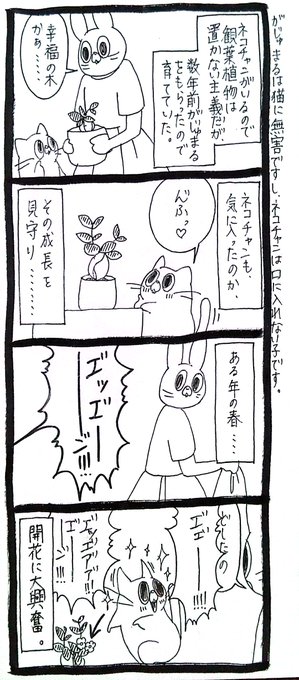 がじゅまるは猫に無害ですし、ネコチャンは口に入れない子です。
ネコチャンがいるので
観葉植物は
置かない主義だが
数年前がじゅまる
をもらったので
育てていた。
幸福の木
かぁ……
んふっ♡
ネコチャンも、
気に入ったのか、
その成長を
見守り………
ある年の春……
エッエー
ーッ!!!
どうしたの
ーー!!!
エッエッ
エアー
ーー!!
エェ
ーー!!!
開花に大興奮。